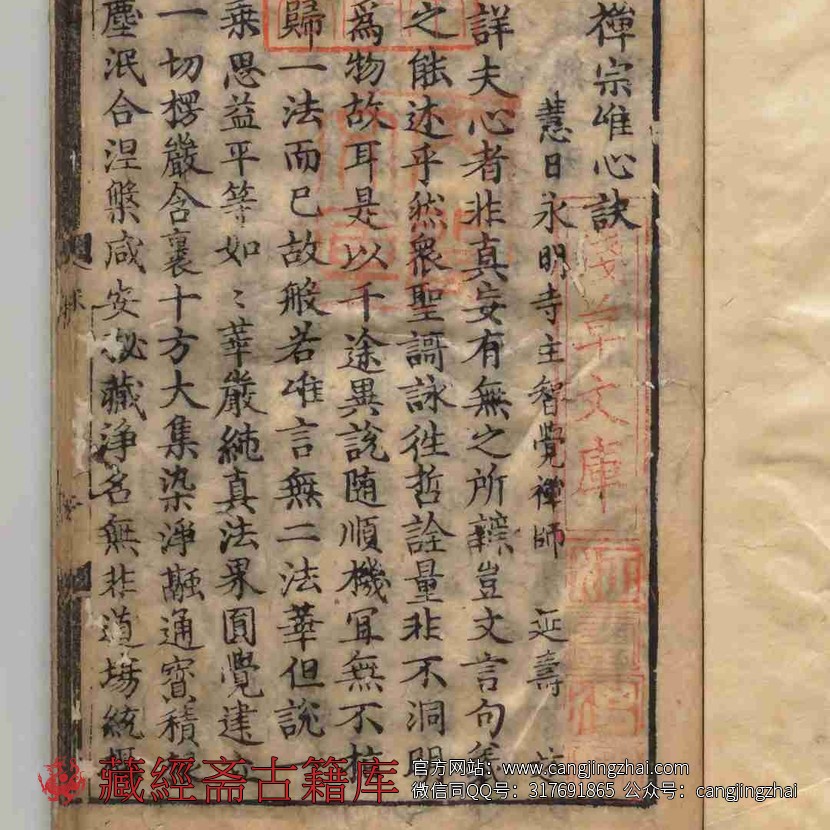 禪宗唯心訣
慧日永明寺主智覺禪師 延壽 述
詳夫心者非真妄有無之所辯豈文言句義
之能述乎然衆聖謌詠往哲詮量非不洞明
爲物故耳是以千途異說随順機冝無不
歸一法而已故般若唯言無二法華但說
乗思益平等如〻華嚴純真法界圓覺建
一切楞嚴含褁十方大集染淨融通寳積
塵泯合涅槃咸安秘藏淨名無非道場統
淺草文庫
藏經斋古籍库
官方网站：www.cangjingzhai.com
微信同QQ号：317691865 公众号：cangjingzhai